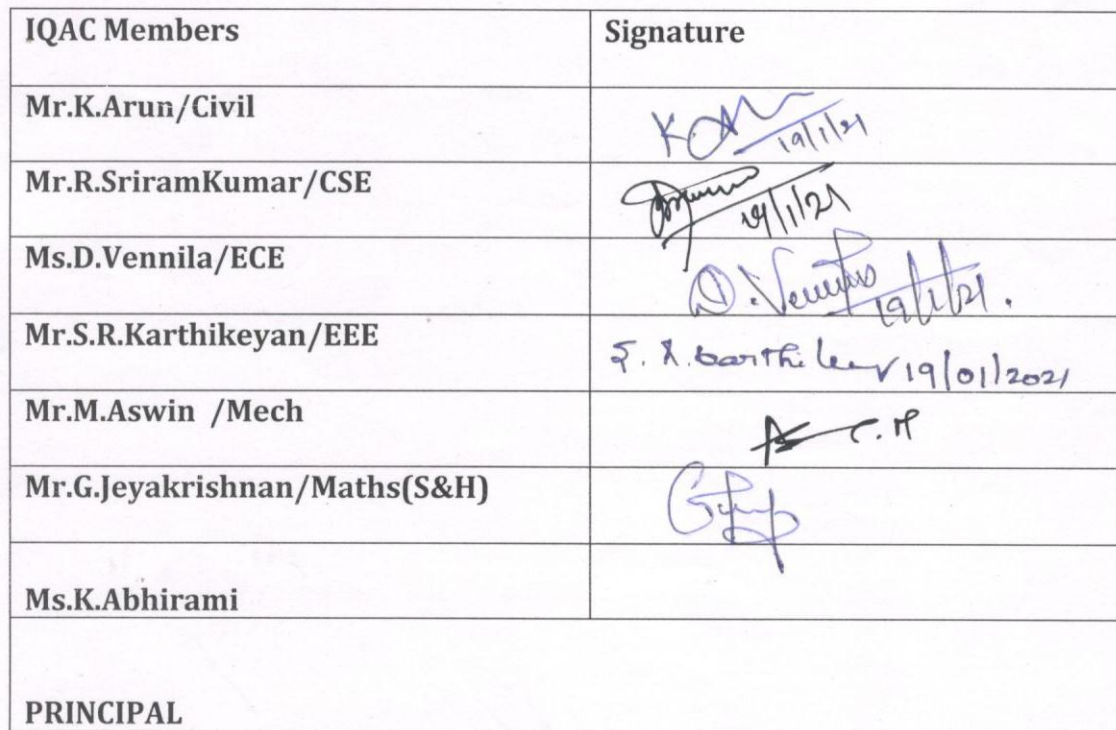 IQAC Members Signature
Mr.K.Arun/Civil K.A 19/1/21
Mr.R.SriramKumar/CSE 19/1/21
Ms.D.Vennila/ECE D.Vennila 19/1/21.
Mr.S.R.Karthikeyan/EEE S.R.Karthikey 19/01/2021
Mr.M.Aswin /Mech
Mr.G.Jeyakrishnan/Maths(S&H)
Ms.K.Abhirami
PRINCIPAL